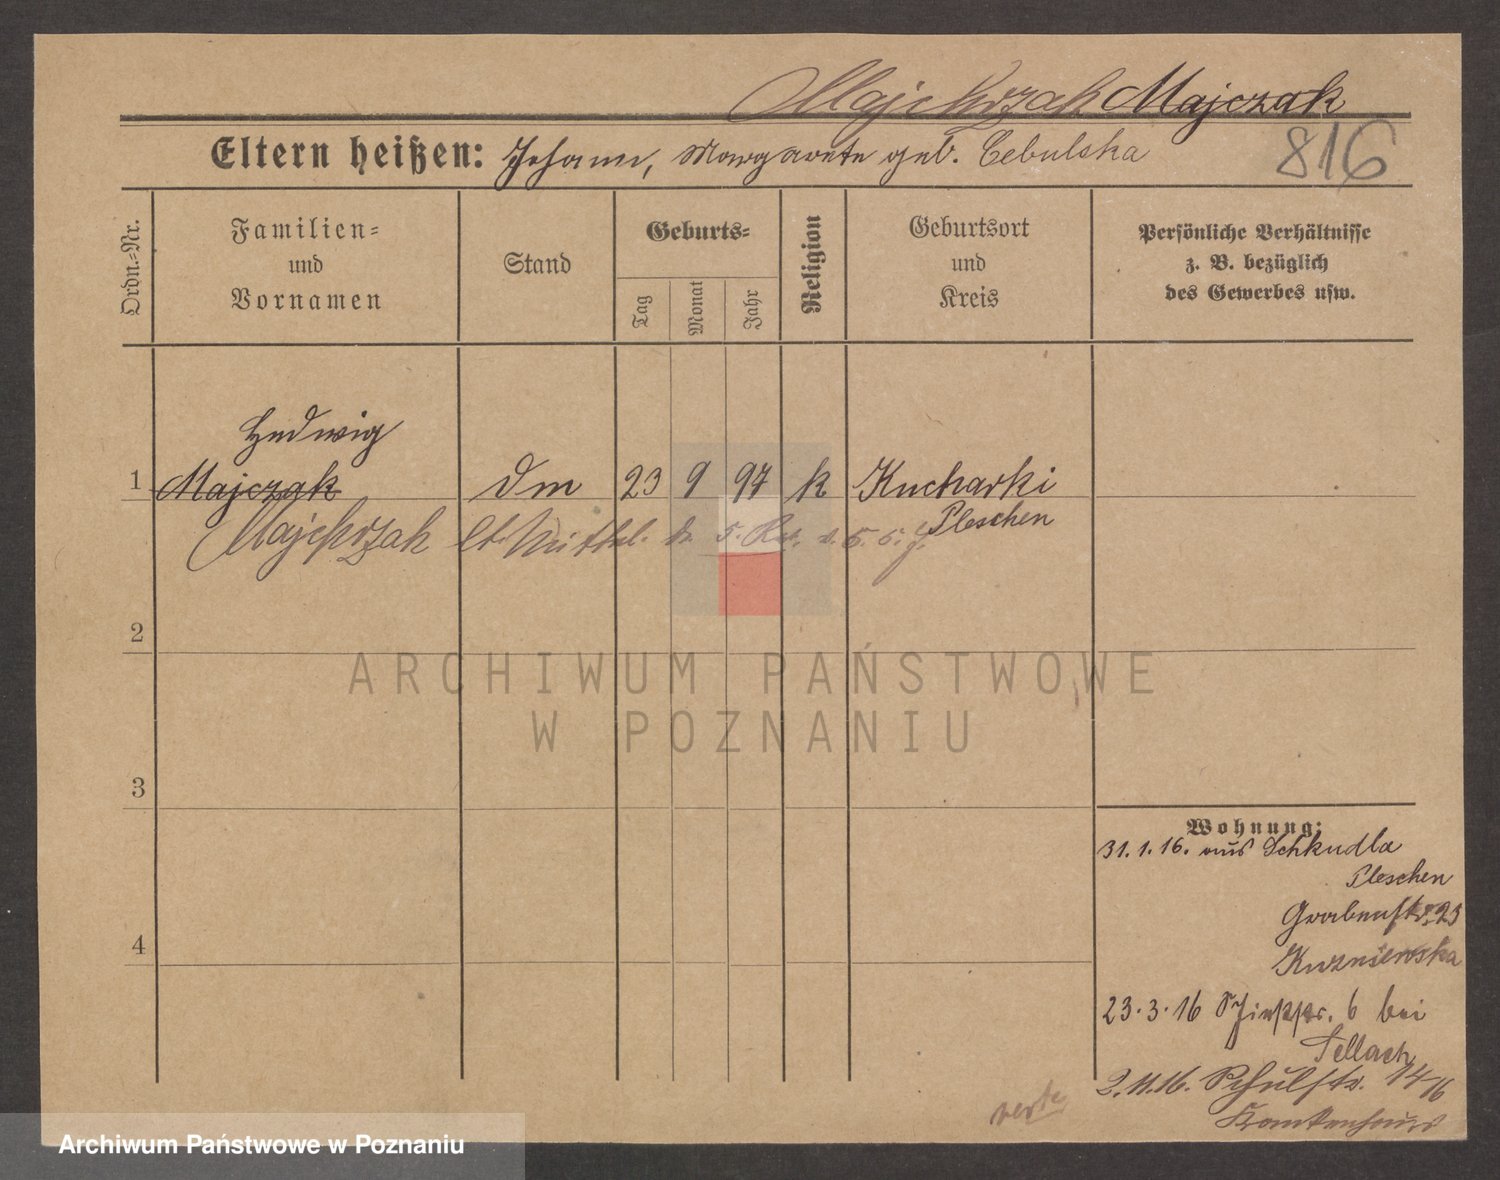 Majchrzak Majczak
Eltern heißen: Johann, Margarete geb. Cebulska
816
Ordn.-Nr.
Familien-
und
Vornamen
Stand
Geburts-
Tag
Monat
Jahr
Religion
Geburtsort
und
Kreis
Persönliche Verhältnisse
z. B. bezüglich
des Gewerbes usw.
Hedwig
1 Majczak Dm 23 9 97 k Kucharki
Pleschen
Majchrzak lt. Mittel. d. 5. v.
2
3
4
ARCHIWUM PAŃSTWOWE
W POZNANIU
Wohnung:
31. 1. 16. aus Schkudla
Pleschen
Grabenstr. 23
Kuzniewska
23. 3. 16 6 bei
Sellach
2. 11. 16. Schulstr. 14/16
Krankenhaus
verte
Archiwum Państwowe w Poznaniu